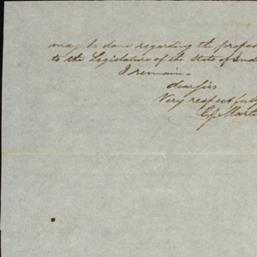 may be done regarding the
to the Legislature of the State of
I remain
dear Sir
Very respectfully